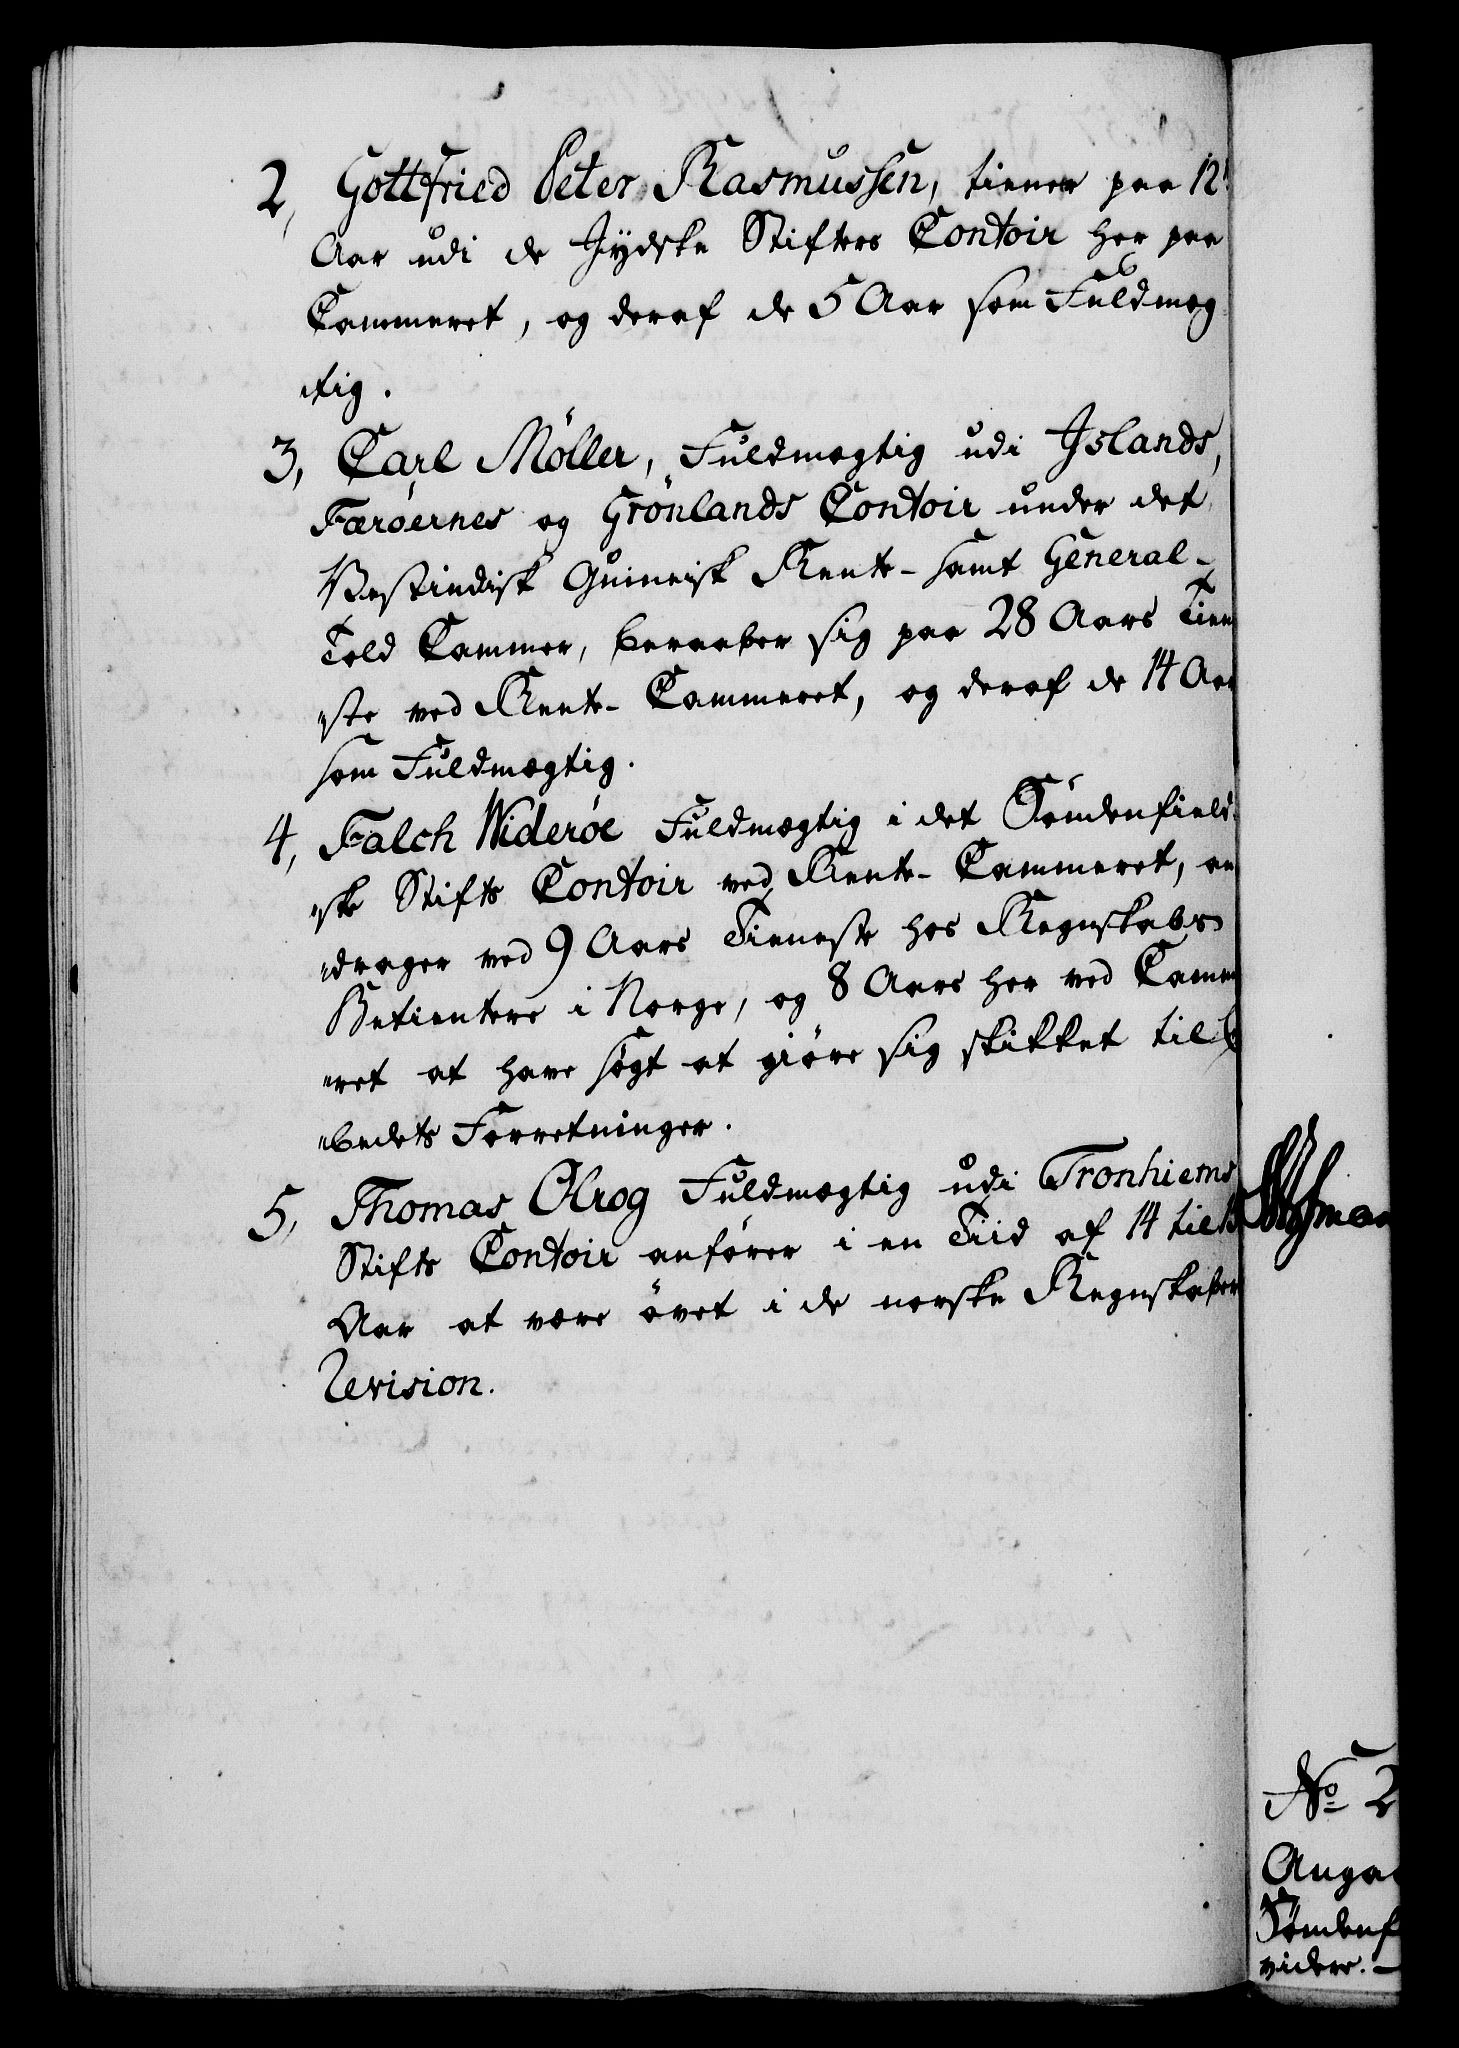 2, Gottfried Peter Rasmussen, tiener paa 12te
Aar udi de Jydske Stifters Contoir her paa
Cammeret, og deraf de 5 Aar som Fuldmæg
tig.
3, Carl Møller, Fuldmægtig udi Islands,
Færøernes og Grönlands Contoir under det
Westindisk Guineisk Rente- samt General-
Told Cammer, beraaber sig paa 28 Aars Tiene
"ste ved Rente-Cammeret, og deraf de 14 Aar
som Fuldmægtig.
4, Falch Widerøe Fuldmægtig i det Söndenfield
"ske Stifts Contoir ved Rente-Cammeret, an
"drager ved 9 Aars Tieneste hos Regnskabs
Betientere i Norge, og 8 Aars her ved Camme
"ret at have søgt at giöre sig skikket til
"bedets Forretninger.
5, Thomas Olrog Fuldmægtig udi Tronhiems
Stifts Contoir anfører i en Tiid af 14 til 15
Aar at være övet i de norske Regnskabers
Revision.
No 2
Angaa
Söndenf
videre. –